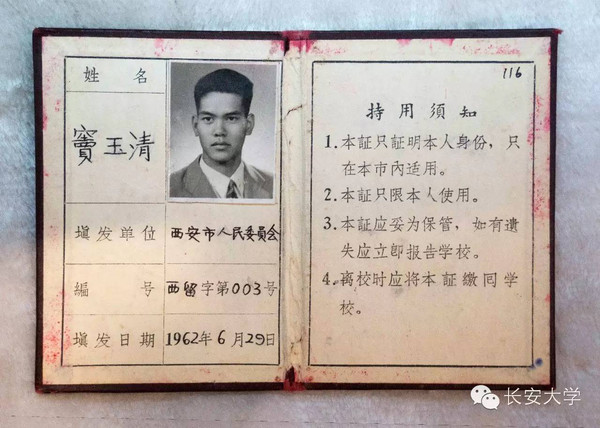 姓名
窦玉清
填发单位 西安市人民委員会
編号 西留字第003号
填发日期 1962年6月29日
116
持用须知
1.本証只証明本人身份，只
在本市內适用。
2.本証只限本人使用。
3.本証应妥为保管，如有遺
失应立卽报告学校。
4.离校时应将本証繳囘学
校。
长安大学